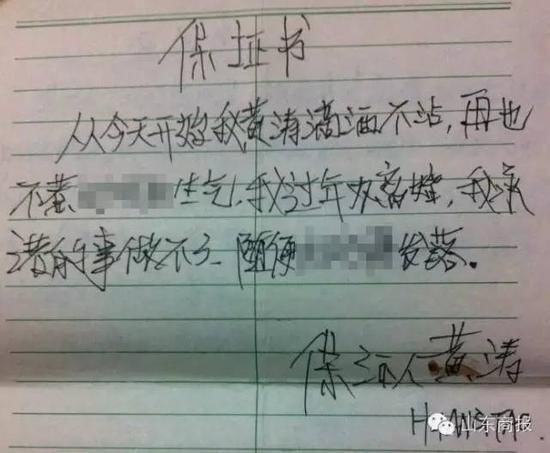 保证书
从从今天开始我黄涛滴酒不沾,再也
不惹 生气,我过年,我承
诺的事做不了 随便 发落。
保证人黄涛
山东商报